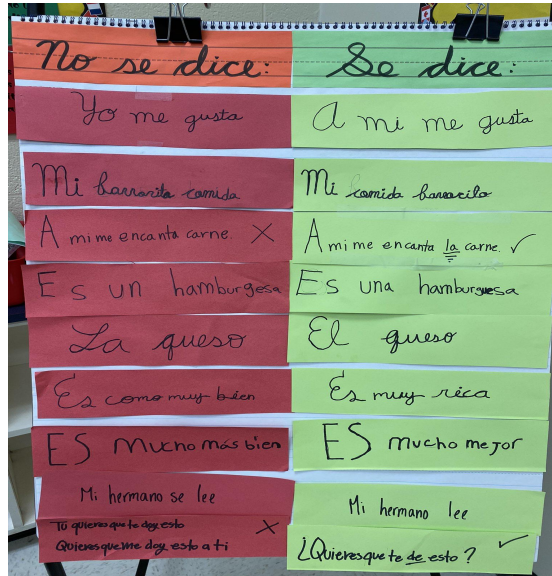 No se dice:
Se dice:
Yo me gusta
A mi me gusta
Mi comida
Mi comida
A mi me encanta carne. X
A mi me encanta la carne. ✓
Es un hamburgesa
Es una hamburguesa
La queso
El queso
Es como muy bien
Es muy rica
ES mucho más bien
ES mucho mejor
Mi hermano se lee
Mi hermano lee
Tú quieres que te doy esto X
Quieres que me doy esto a ti
¿Quieres que te de esto? ✓